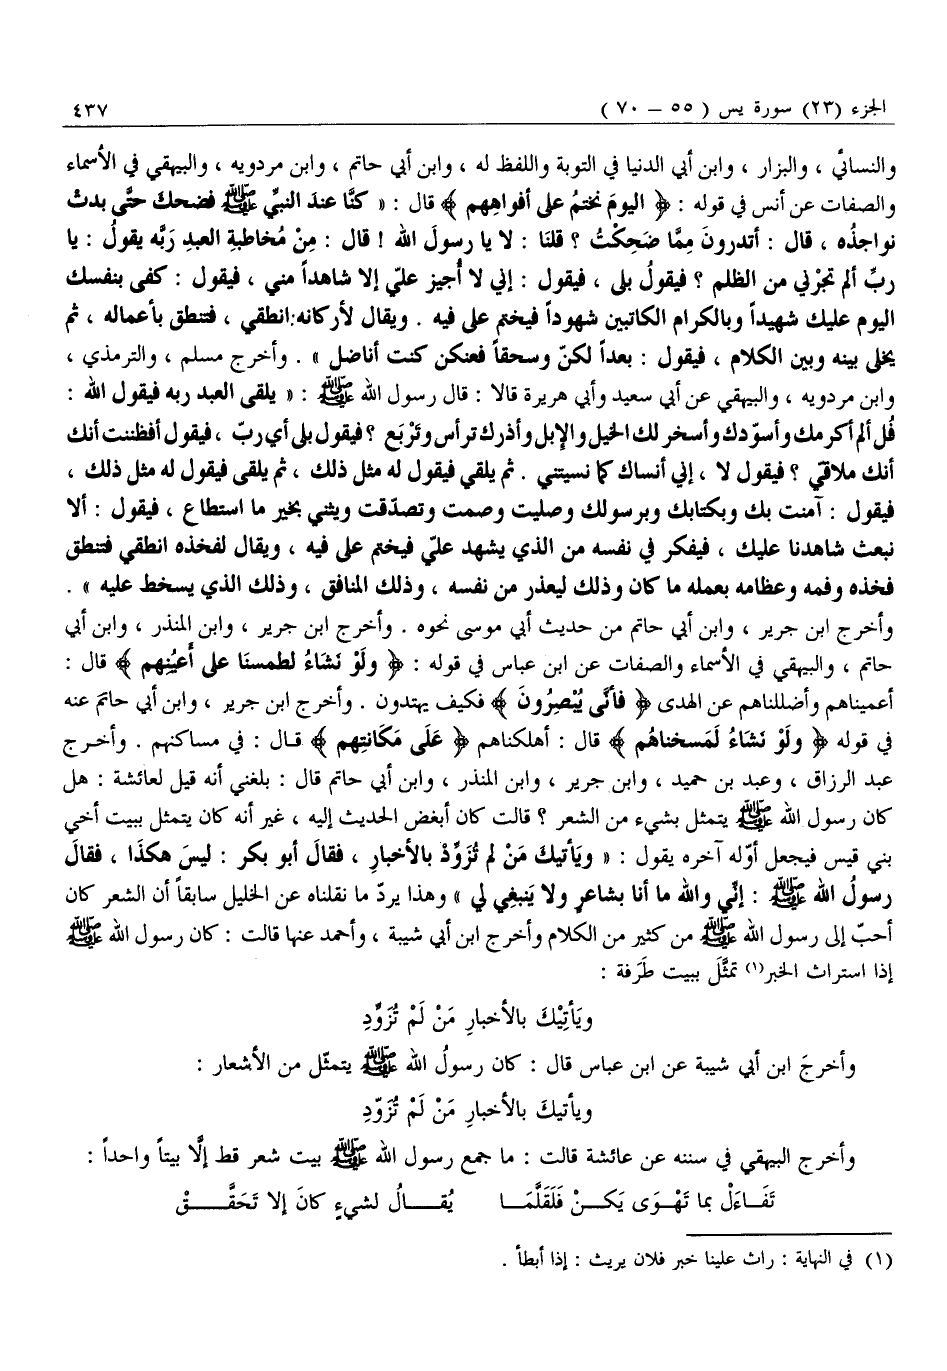 الجزء (٢٣) سورة يس ( ٥٥ – ٧٠ ) ٤٣٧
والنسائي ، والبزار ، وابن أبي الدنيا في التوبة واللفظ له ، وابن أبي حاتم ، وابن مردويه ، والبيهقي في الأسماء
والصفات عن أنس في قوله : ﴿ اليومَ نختمُ على أفواهِهم ﴾ قال : « كنَّا عندَ النبيِّ ﷺ فضحكَ حتَّى بدتْ
نواجذُه ، قال : أتدرونَ مِمَّا ضَحِكْتُ ؟ قلنَا : لا يا رسولَ الله ! قال : مِنْ مُخاطبةِ العبدِ رَبَّه يقولُ : يا
ربِّ ألم تجرْني من الظلم ؟ فيقولُ بلى ، فيقول : إني لا أُجيز عليّ إلا شاهداً مني ، فيقول : كفى بنفسك
اليوم عليك شهيداً وبالكرام الكاتبين شهوداً فيختم على فيه . ويقال لأركانه:انطقي ، فتنطق بأعماله ، ثم
يخلى بينه وبين الكلام ، فيقول : بعداً لكنّ وسحقاً فعنكن كنت أناضل » . وأخرج مسلم ، والترمذي ،
وابن مردويه ، والبيهقي عن أبي سعيد وأبي هريرة قالا : قال رسول الله ﷺ : « يلقى العبد ربه فيقول الله :
فُل ألم أكرمك وأسوّدك وأسخر لك الخيل والإبل وأذرك ترأس وتَرْبَع ؟ فيقول بلى أي ربّ ، فيقول أفظننت أنك
أنك ملاقيّ ؟ فيقول لا ، إني أنساك كما نسيتني . ثم يلقى فيقول له مثل ذلك ، ثم يلقى فيقول له مثل ذلك ،
فيقول : آمنت بك وبكتابك وبرسولك وصليت وصمت وتصدّقت ويثني بخير ما استطاع ، فيقول : ألا
نبعث شاهدنا عليك ، فيفكر في نفسه من الذي يشهد عليّ فيختم على فيه ، ويقال لفخذه انطقي فتنطق
فخذه وفمه وعظامه بعمله ما كان وذلك ليعذر من نفسه ، وذلك المنافق ، وذلك الذي يسخط عليه » .
وأخرج ابن جرير ، وابن أبي حاتم من حديث أبي موسى نحوه . وأخرج ابن جرير ، وابن المنذر ، وابن أبي
حاتم ، والبيهقي في الأسماء والصفات عن ابن عباس في قوله : ﴿ ولَوْ نَشَاءُ لطمسنَا على أَعيُنِهم ﴾ قال :
أعميناهم وأضللناهم عن الهدى ﴿ فأنَّى يُبْصِرُونَ ﴾ فكيف يهتدون . وأخرج ابن جرير ، وابن أبي حاتم عنه
في قوله ﴿ ولَوْ نَشَاءُ لَمَسخناهُم ﴾ قال : أهلكناهم ﴿ عَلَى مَكَانَتِهم ﴾ قال : في مساكنهم . وأخرج
عبد الرزاق ، وعبد بن حميد ، وابن جرير ، وابن المنذر ، وابن أبي حاتم قال : بلغني أنه قيل لعائشة : هل
كان رسول الله ﷺ يتمثل بشيء من الشعر ؟ قالت كان أبغض الحديث إليه ، غير أنه كان يتمثل ببيت أخي
بني قيس فيجعل أوّله آخره يقول : « ويَأتيكَ مَنْ لم تُزَوِّدْ بالأخبارِ ، فقالَ أبو بكر : ليسَ هكذَا ، فقالَ
رسولُ الله ﷺ : إنِّي والله ما أنا بشاعرٍ ولا يَنبغِي لي » وهذا يردّ ما نقلناه عن الخليل سابقاً أن الشعر كان
أحبّ إلى رسول الله ﷺ من كثير من الكلام وأخرج ابن أبي شيبة ، وأحمد عنها قالت : كان رسول الله ﷺ
إذا استراث الخبر(١) تمثَّلَ ببيت طَرَفة :
ويَأتِيْكَ بالأخبارِ مَنْ لَمْ تُزَوِّدِ
وأخرجَ ابن أبي شيبة عن ابن عباس قال : كان رسولُ الله ﷺ يتمثّل من الأشعار :
ويأتيكَ بالأخبارِ مَنْ لَمْ تُزَوّدِ
وأخرج البيهقي في سننه عن عائشة قالت : ما جمع رسول الله ﷺ بيت شعر قط إلَّا بيتاً واحداً :
تَفَـاءَلْ بما تَهْوَى يَكـنْ فَلَقَلَّمَـا يُقـالُ لشيءٍ كانَ إلا تَحَقَّـقْ
(١) في النهاية : راث علينا خبر فلان يريث : إذا أبطأ .